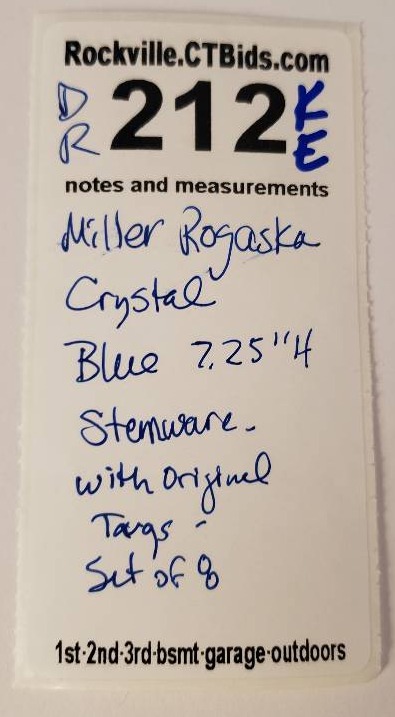 Rockville.CTBids.com
DR 212 KE
notes and measurements
Miller Rogaska
Crystal
Blue 7.25"H
Stemware-
with Original
Tags -
Set of 8
1st·2nd·3rd·bsmt·garage·outdoors